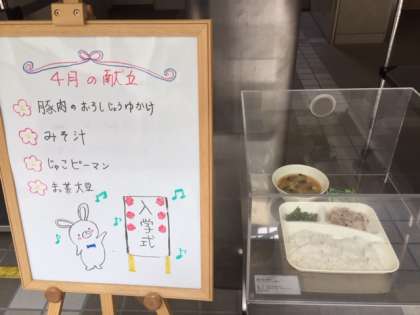 4月の献立
豚肉のおろしじょうゆかけ
みそ汁
じゃこピーマン
お茶大豆
入学式